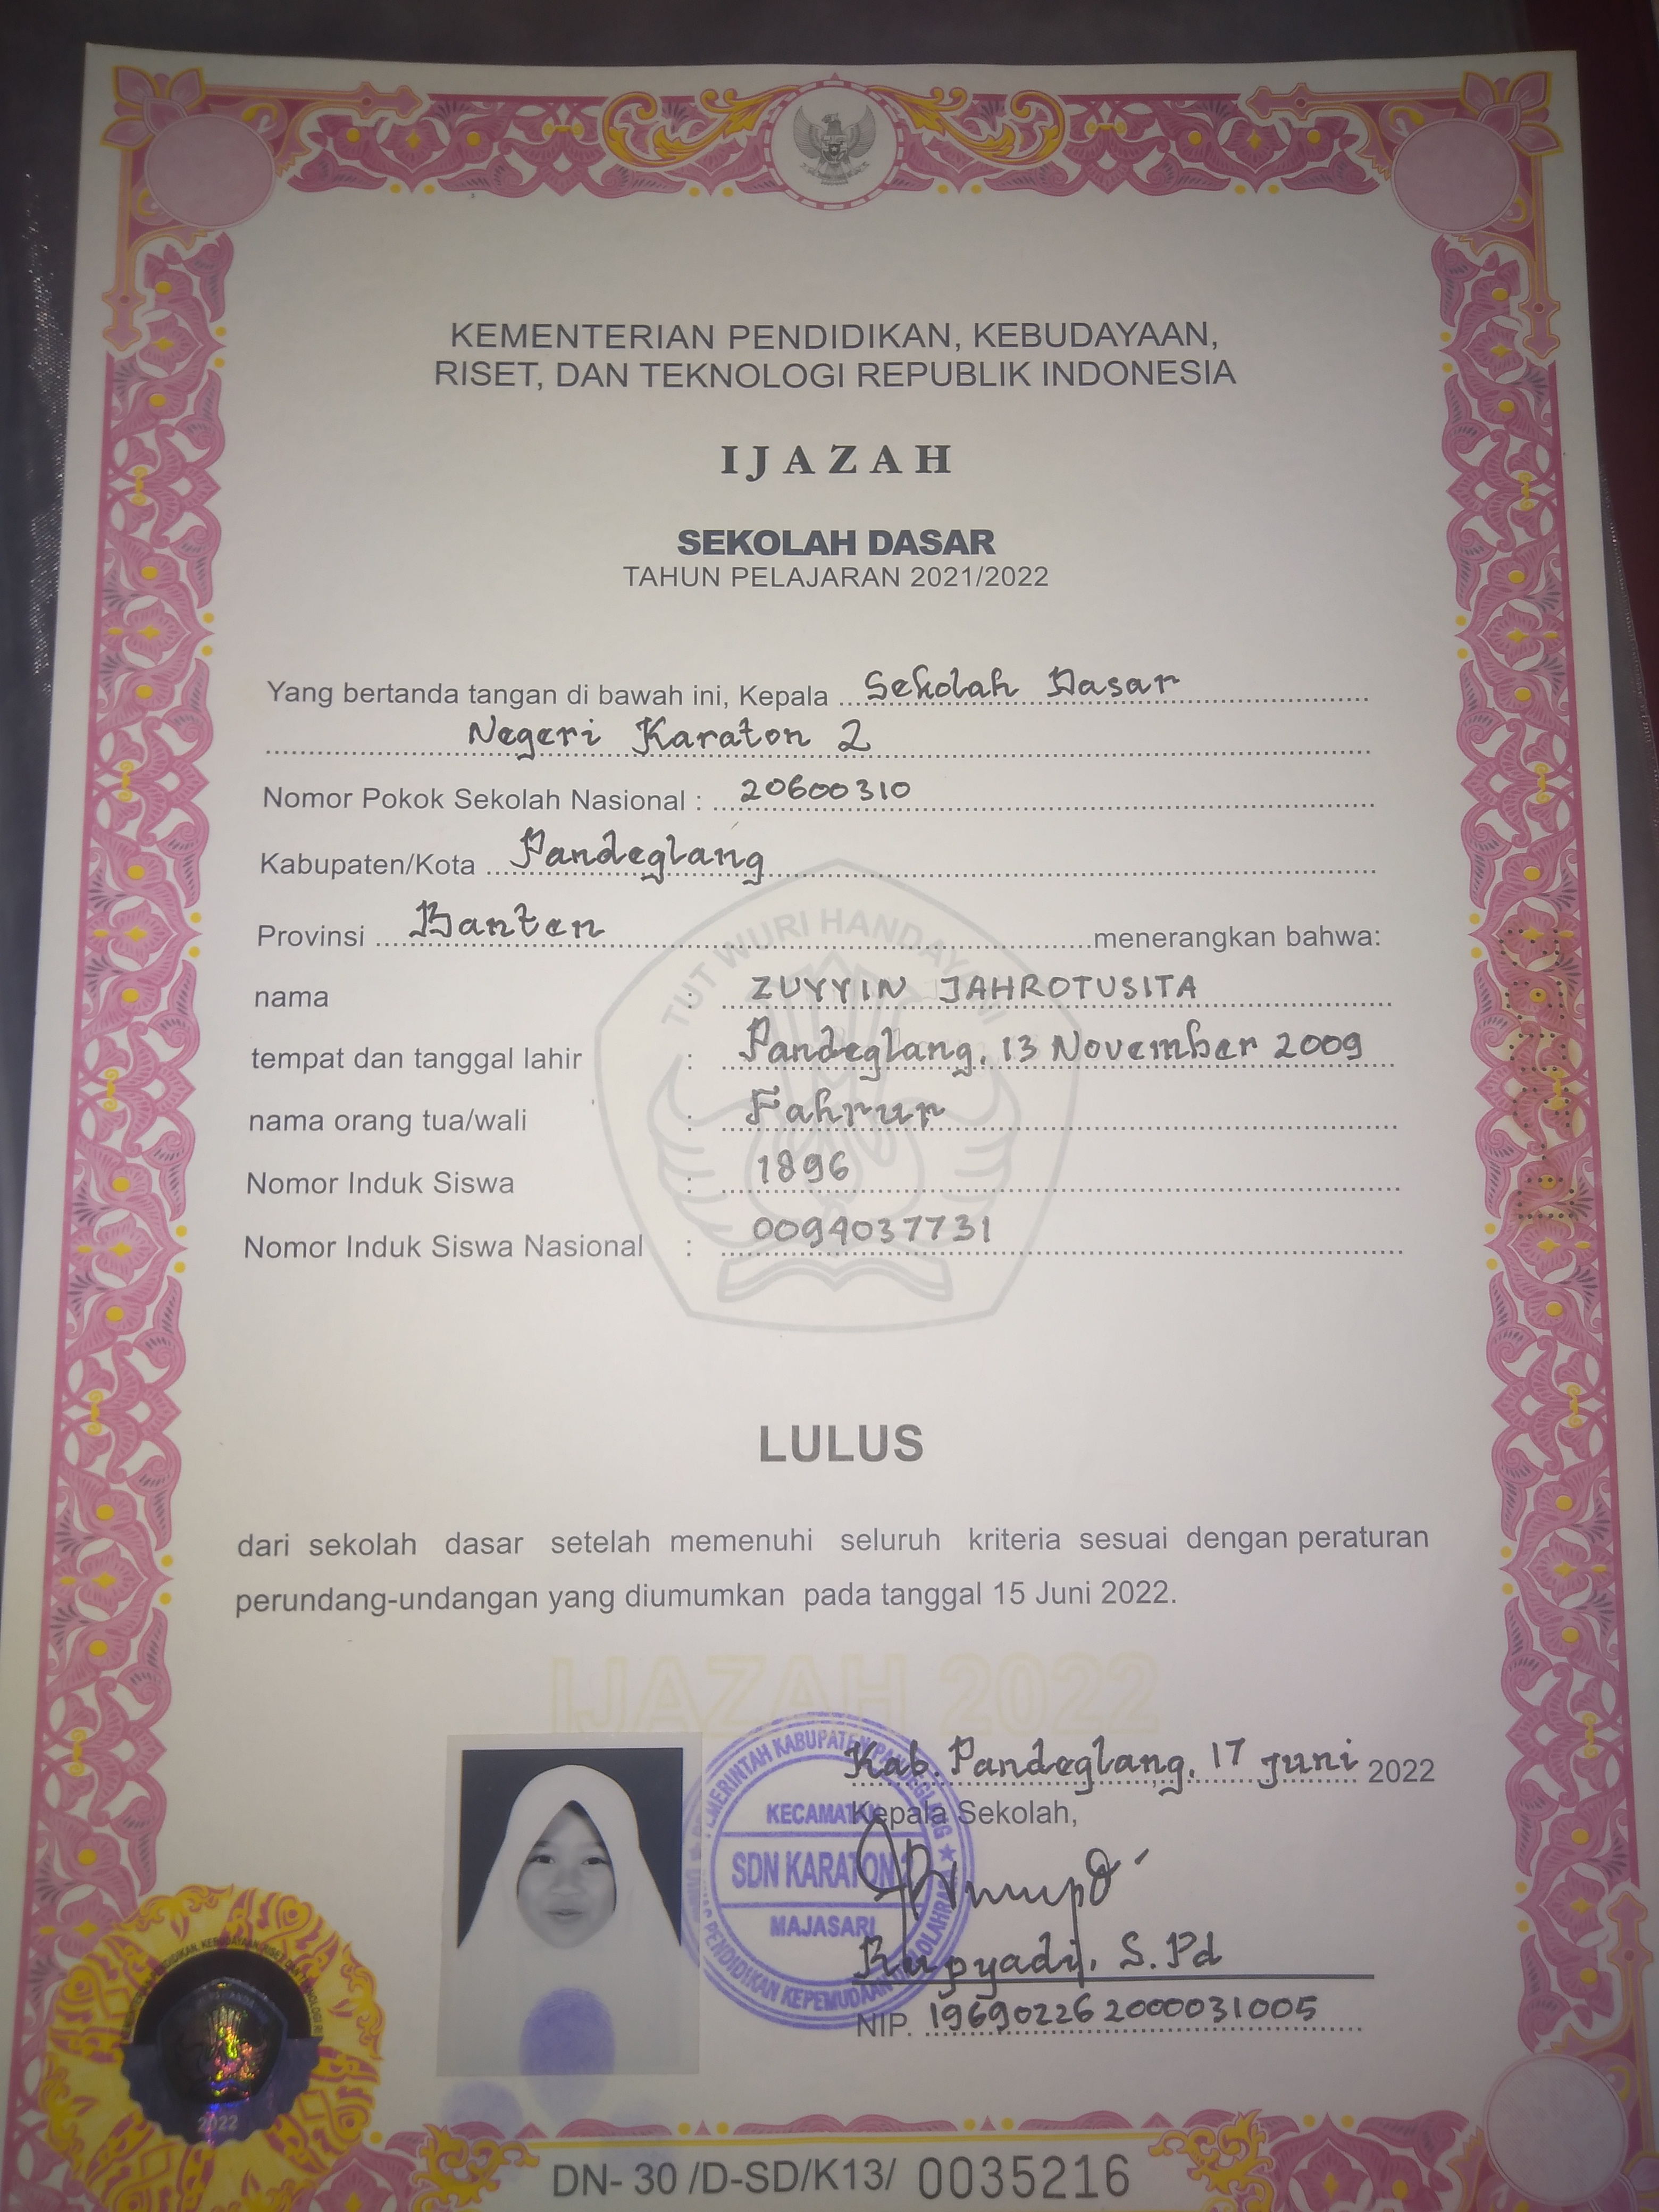 KEMENTERIAN PENDIDIKAN, KEBUDAYAAN,
RISET, DAN TEKNOLOGI REPUBLIK INDONESIA
IJAZAH
SEKOLAH DASAR
TAHUN PELAJARAN 2021/2022
Yang bertanda tangan di bawah ini, Kepala Sekolah Dasar
Negeri Karaton 2
Nomor Pokok Sekolah Nasional : 20600310
Kabupaten/Kota Pandeglang
Provinsi Banten menerangkan bahwa:
nama : ZUYYIN JAHROTUSITA
tempat dan tanggal lahir : Pandeglang, 13 November 2009
nama orang tua/wali : Fahrur
Nomor Induk Siswa : 1896
Nomor Induk Siswa Nasional : 0094037731
TUT WURI HANDAYANI
LULUS
dari sekolah dasar setelah memenuhi seluruh kriteria sesuai dengan peraturan
perundang-undangan yang diumumkan pada tanggal 15 Juni 2022.
IJAZAH 2022
Kab. Pandeglang, 17 Juni 2022
Kepala Sekolah,
PEMERINTAH KABUPATEN PANDEGLANG
KECAMATAN
SDN KARATON 2
MAJASARI
Rupyadi, S.Pd
NIP. 196902262000031005
2022
DN- 30 /D-SD/K13/ 0035216